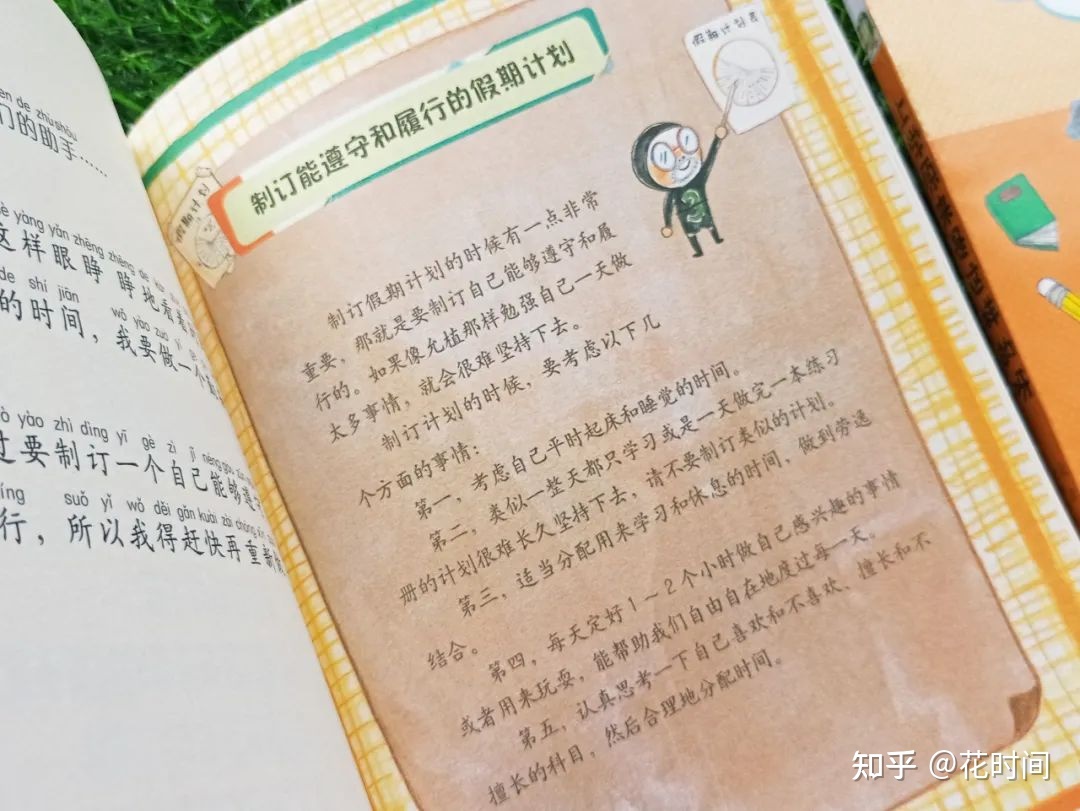 en de zhù shǒu
们的助手……
yàng yǎn zhēng zhēng de
这样眼睁睁地看着
de shí jiān
wǒ yào zuò yī gè
的时间，我要做一个
yào zhì dìng yī gè zì jǐ néng gòu
过要制订一个自己能够遵
suǒ yǐ wǒ děi gǎn kuài zài chóng xīn
行，所以我得赶快再重新
假期计划表
制订能遵守和履行的假期计划
制订假期计划的时候有一点非常
重要，那就是要制订自己能够遵守和履
行的。如果像允植那样勉强自己一天做
太多事情，就会很难坚持下去。
制订计划的时候，要考虑以下几
个方面的事情：
第一，考虑自己平时起床和睡觉的时间。
第二，类似一整天都只学习或是一天做完一本练习
册的计划很难长久坚持下去，请不要制订类似的计划。
第三，适当分配用来学习和休息的时间，做到劳逸
结合。
第四，每天定好1～2个小时做自己感兴趣的事情
或者用来玩耍，能帮助我们自由自在地度过每一天。
第五，认真思考一下自己喜欢和不喜欢、擅长和不
擅长的科目，然后合理地分配时间。
知乎 @花时间